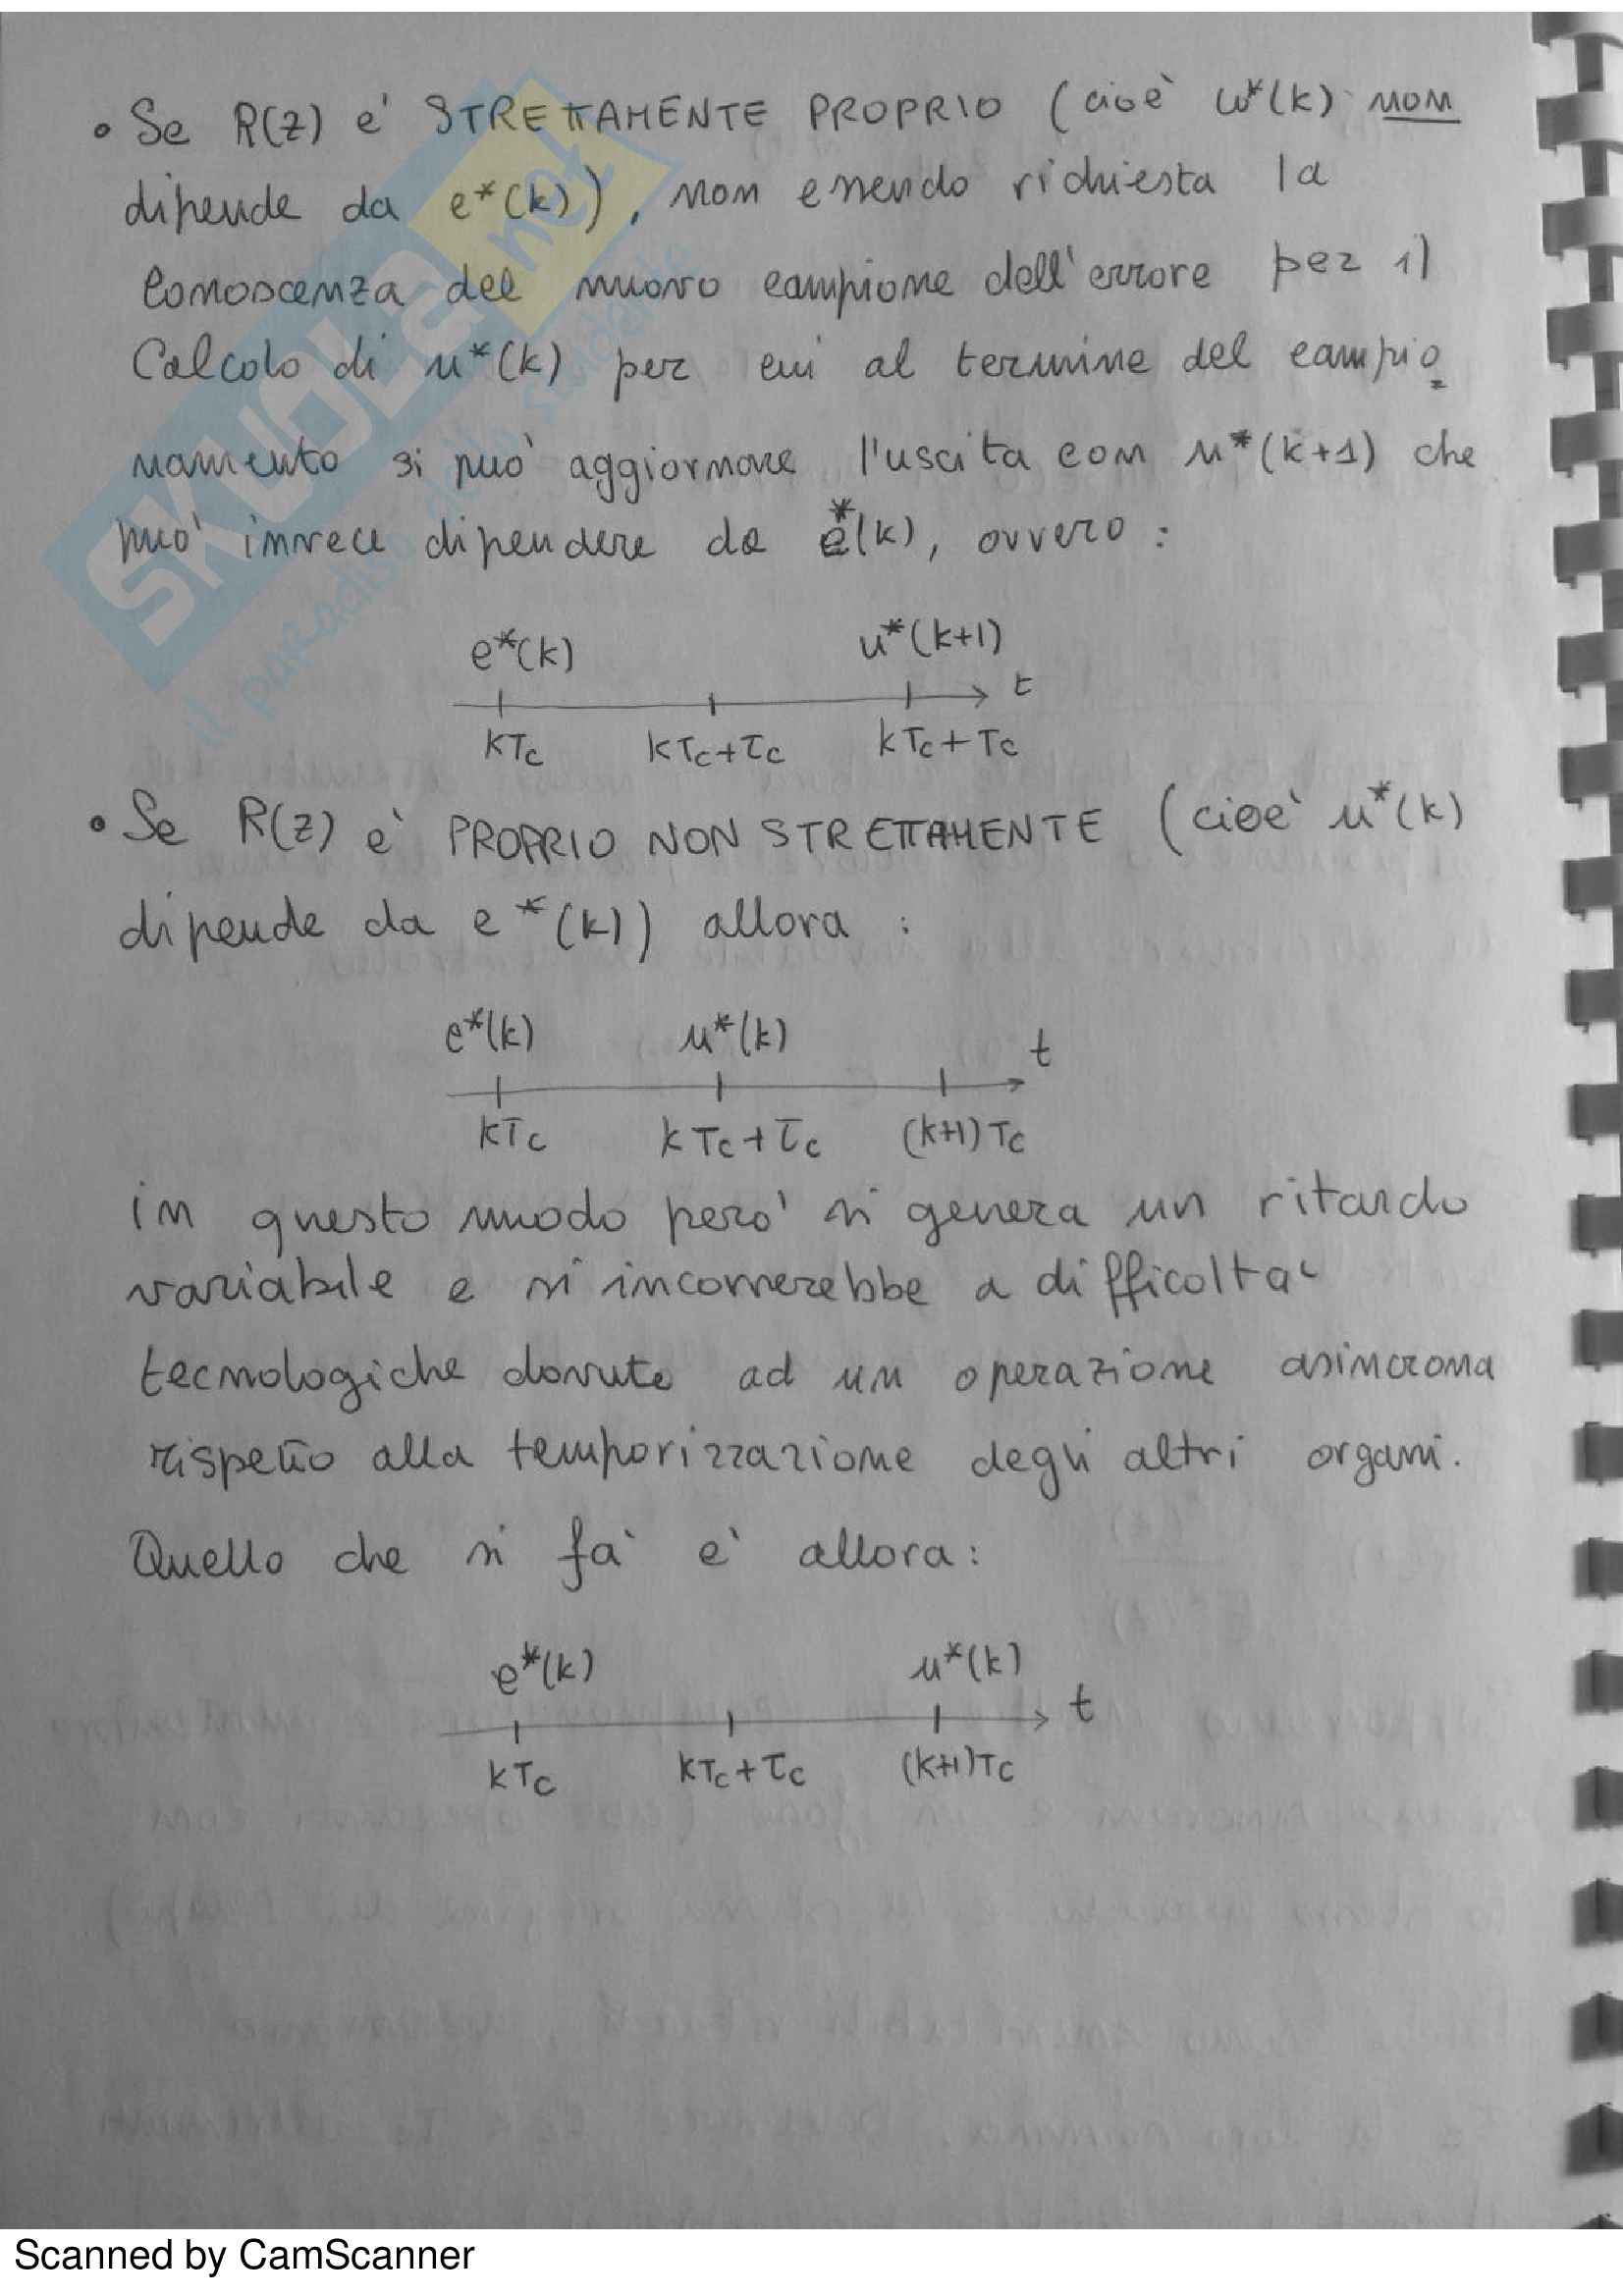 • Se R(z) e' STRETTAMENTE PROPRIO (cioè u*(k) non
dipende da e*(k)), non essendo richiesta la
conoscenza del nuovo campione dell'errore per il
Calcolo di u*(k) per cui al termine del campio
namento si puo' aggiornare l'uscita con u*(k+1) che
puo' invece dipendere da e*(k), ovvero :
e*(k) u*(k+1)
t
kTc kTc+τc kTc+Tc
• Se R(z) e' PROPRIO NON STRETTAMENTE (cioe' u*(k)
dipende da e*(k)) allora :
e*(k) u*(k) t
kTc kTc+τc (k+1)Tc
in questo modo pero' si genera un ritardo
variabile e si incorrerebbe a difficolta'
tecnologiche dovute ad un operazione asincrona
rispetto alla temporizzazione degli altri organi.
Quello che si fa' e' allora:
e*(k) u*(k)
t
kTc kTc+τc (k+1)Tc
SKUOLA.net
il paradiso dello studente
Scanned by CamScanner